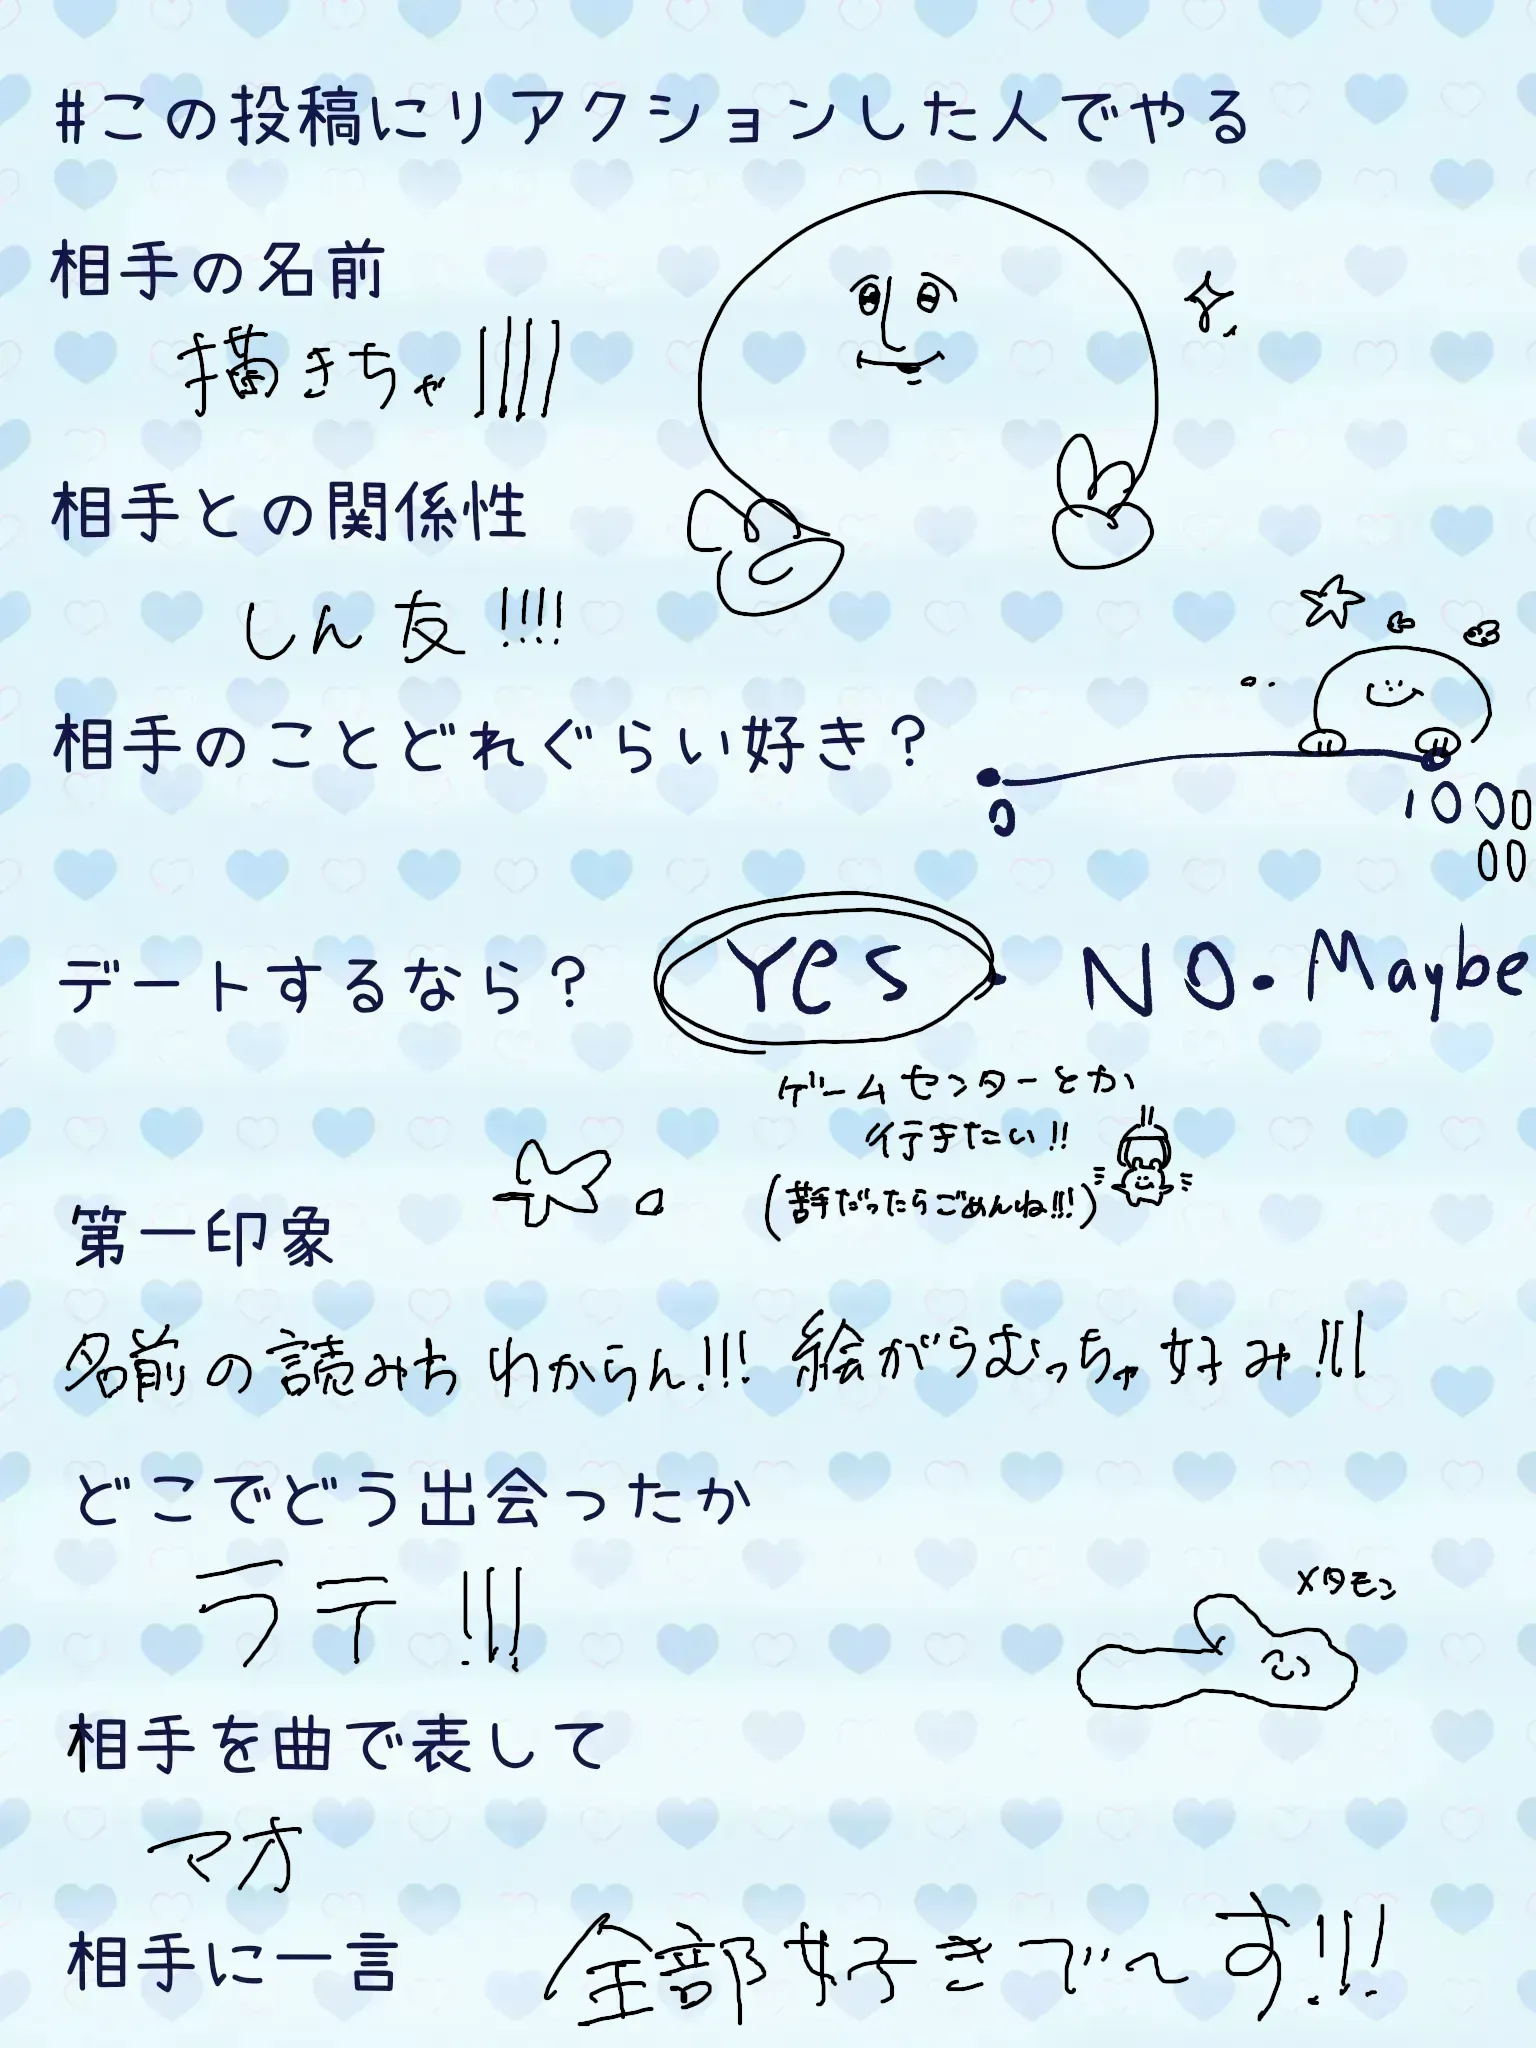 #この投稿にリアクションした人でやる
相手の名前
描きちゃ||||
相手との関係性
しん友!!!!
相手のことどれぐらい好き?
0
1000
00
デートするなら?
Yes・NO・Maybe
ゲームセンターとか
行きたい!!
(苦手だったらごめんね!!!)
第一印象
名前の読みちわからん!!! 絵がらむっちゃ好み!!!
どこでどう出会ったか
ラテ!!!
メタモン
相手を曲で表して
マオ
相手に一言
全部好きで〜す!!!